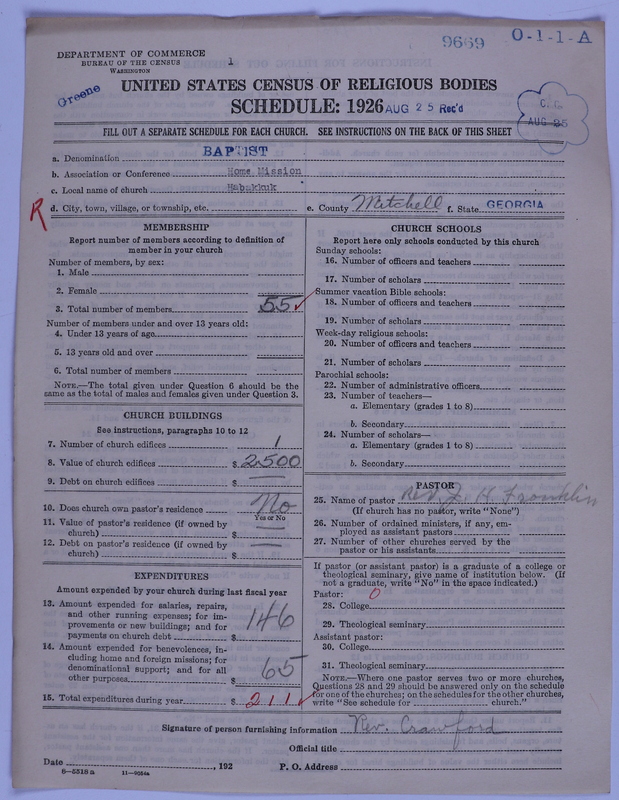 9669 O-1-1-A
DEPARTMENT OF COMMERCE
BUREAU OF THE CENSUS
WASHINGTON
1
Greene
UNITED STATES CENSUS OF RELIGIOUS BODIES
SCHEDULE: 1926
AUG 25 Rec'd
C. C.
AUG 25
FILL OUT A SEPARATE SCHEDULE FOR EACH CHURCH. SEE INSTRUCTIONS ON THE BACK OF THIS SHEET
a. Denomination BAPTIST
b. Association or Conference Home Mission
c. Local name of church Habakkuk
R
d. City, town, village, or township, etc. e. County Mitchell f. State GEORGIA
MEMBERSHIP
Report number of members according to definition of
member in your church
Number of members, by sex:
1. Male
2. Female
3. Total number of members 55
Number of members under and over 13 years old:
4. Under 13 years of age
5. 13 years old and over
6. Total number of members
NOTE.—The total given under Question 6 should be the
same as the total of males and females given under Question 3.
CHURCH BUILDINGS
See instructions, paragraphs 10 to 12
7. Number of church edifices 1
8. Value of church edifices $ 2500
9. Debt on church edifices $
10. Does church own pastor's residence? No
Yes or No
11. Value of pastor's residence (if owned by
church) $
12. Debt on pastor's residence (if owned by
church) $
EXPENDITURES
Amount expended by your church during last fiscal year
13. Amount expended for salaries, repairs,
and other running expenses; for im-
provements or new buildings; and for
payments on church debt $ 146
14. Amount expended for benevolences, in-
cluding home and foreign missions; for
denominational support; and for all
other purposes $ 65
15. Total expenditures during year $ 211
CHURCH SCHOOLS
Report here only schools conducted by this church
Sunday schools:
16. Number of officers and teachers
17. Number of scholars
Summer vacation Bible schools:
18. Number of officers and teachers
19. Number of scholars
Week-day religious schools:
20. Number of officers and teachers
21. Number of scholars
Parochial schools:
22. Number of administrative officers
23. Number of teachers—
a. Elementary (grades 1 to 8)
b. Secondary
24. Number of scholars—
a. Elementary (grades 1 to 8)
b. Secondary
PASTOR
25. Name of pastor Rev. J. H. Franklin
(If church has no pastor, write "None")
26. Number of ordained ministers, if any, em-
ployed as assistant pastors
27. Number of other churches served by the
pastor or his assistants
If pastor (or assistant pastor) is a graduate of a college or
theological seminary, give name of institution below. (If
not a graduate, write "No" in the space indicated.)
Pastor: 0
28. College
29. Theological seminary
Assistant pastor:
30. College
31. Theological seminary
NOTE.—Where one pastor serves two or more churches,
Questions 28 and 29 should be answered only on the schedule
for one of the churches; on the schedules for the other churches,
write "See schedule for church."
Signature of person furnishing information Rev. Crawford
Official title
Date , 192 P. O. Address
8—5518 a 11—9054a